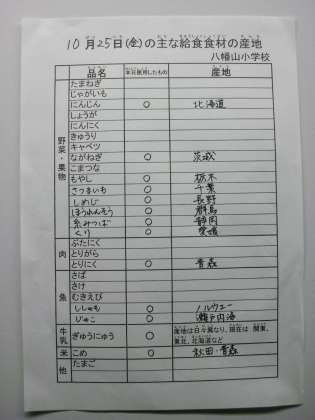 10月25日(金)の主な給食食材の産地
八幡山小学校
品名 本日使用したもの 産地
野菜・果物
たまねぎ
じゃがいも
にんじん ○ 北海道
しょうが
にんにく
きゅうり
キャベツ
ながねぎ ○ 茨城
こまつな
もやし ○ 栃木
さつまいも ○ 千葉
しめじ ○ 長野
ほうれんそう ○ 群馬
糸みつば ○ 静岡
くり ○ 愛媛
肉
ぶたにく
とりがら
とりにく ○ 青森
魚
さば
さけ
むきえび
ししゃも ○ ノルウェー
じゃこ ○ 瀬戸内海
牛乳 ぎゅうにゅう ○ 産地は日々異なり、現在は 関東、
東北、北海道など
米 こめ ○ 秋田・青森
他 たまご